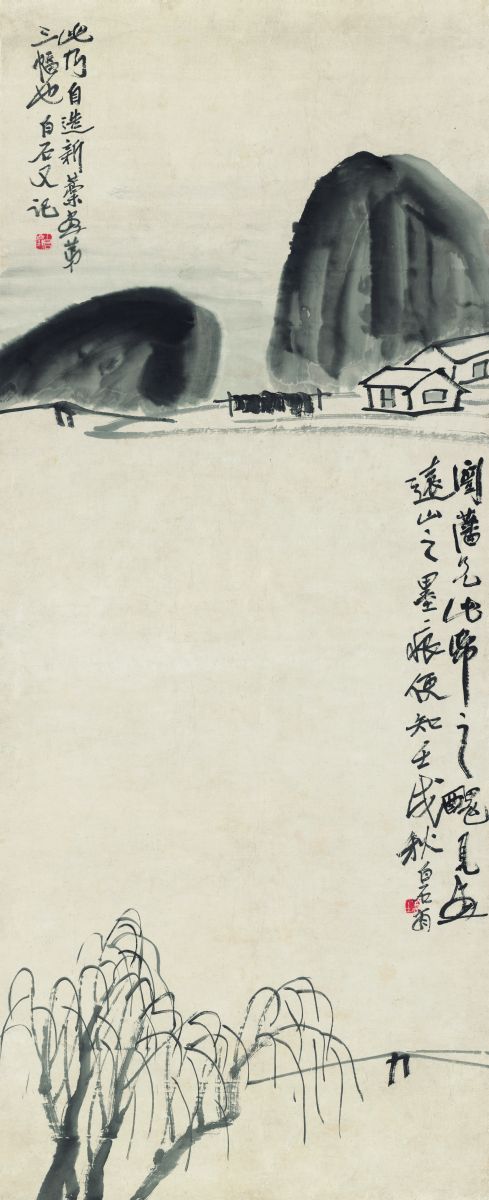 此乃自造新稾畫弟
三幅也白石又記
閏藩兄此帋之醜見畫
遠山之墨痕便知壬戌秋白石翁